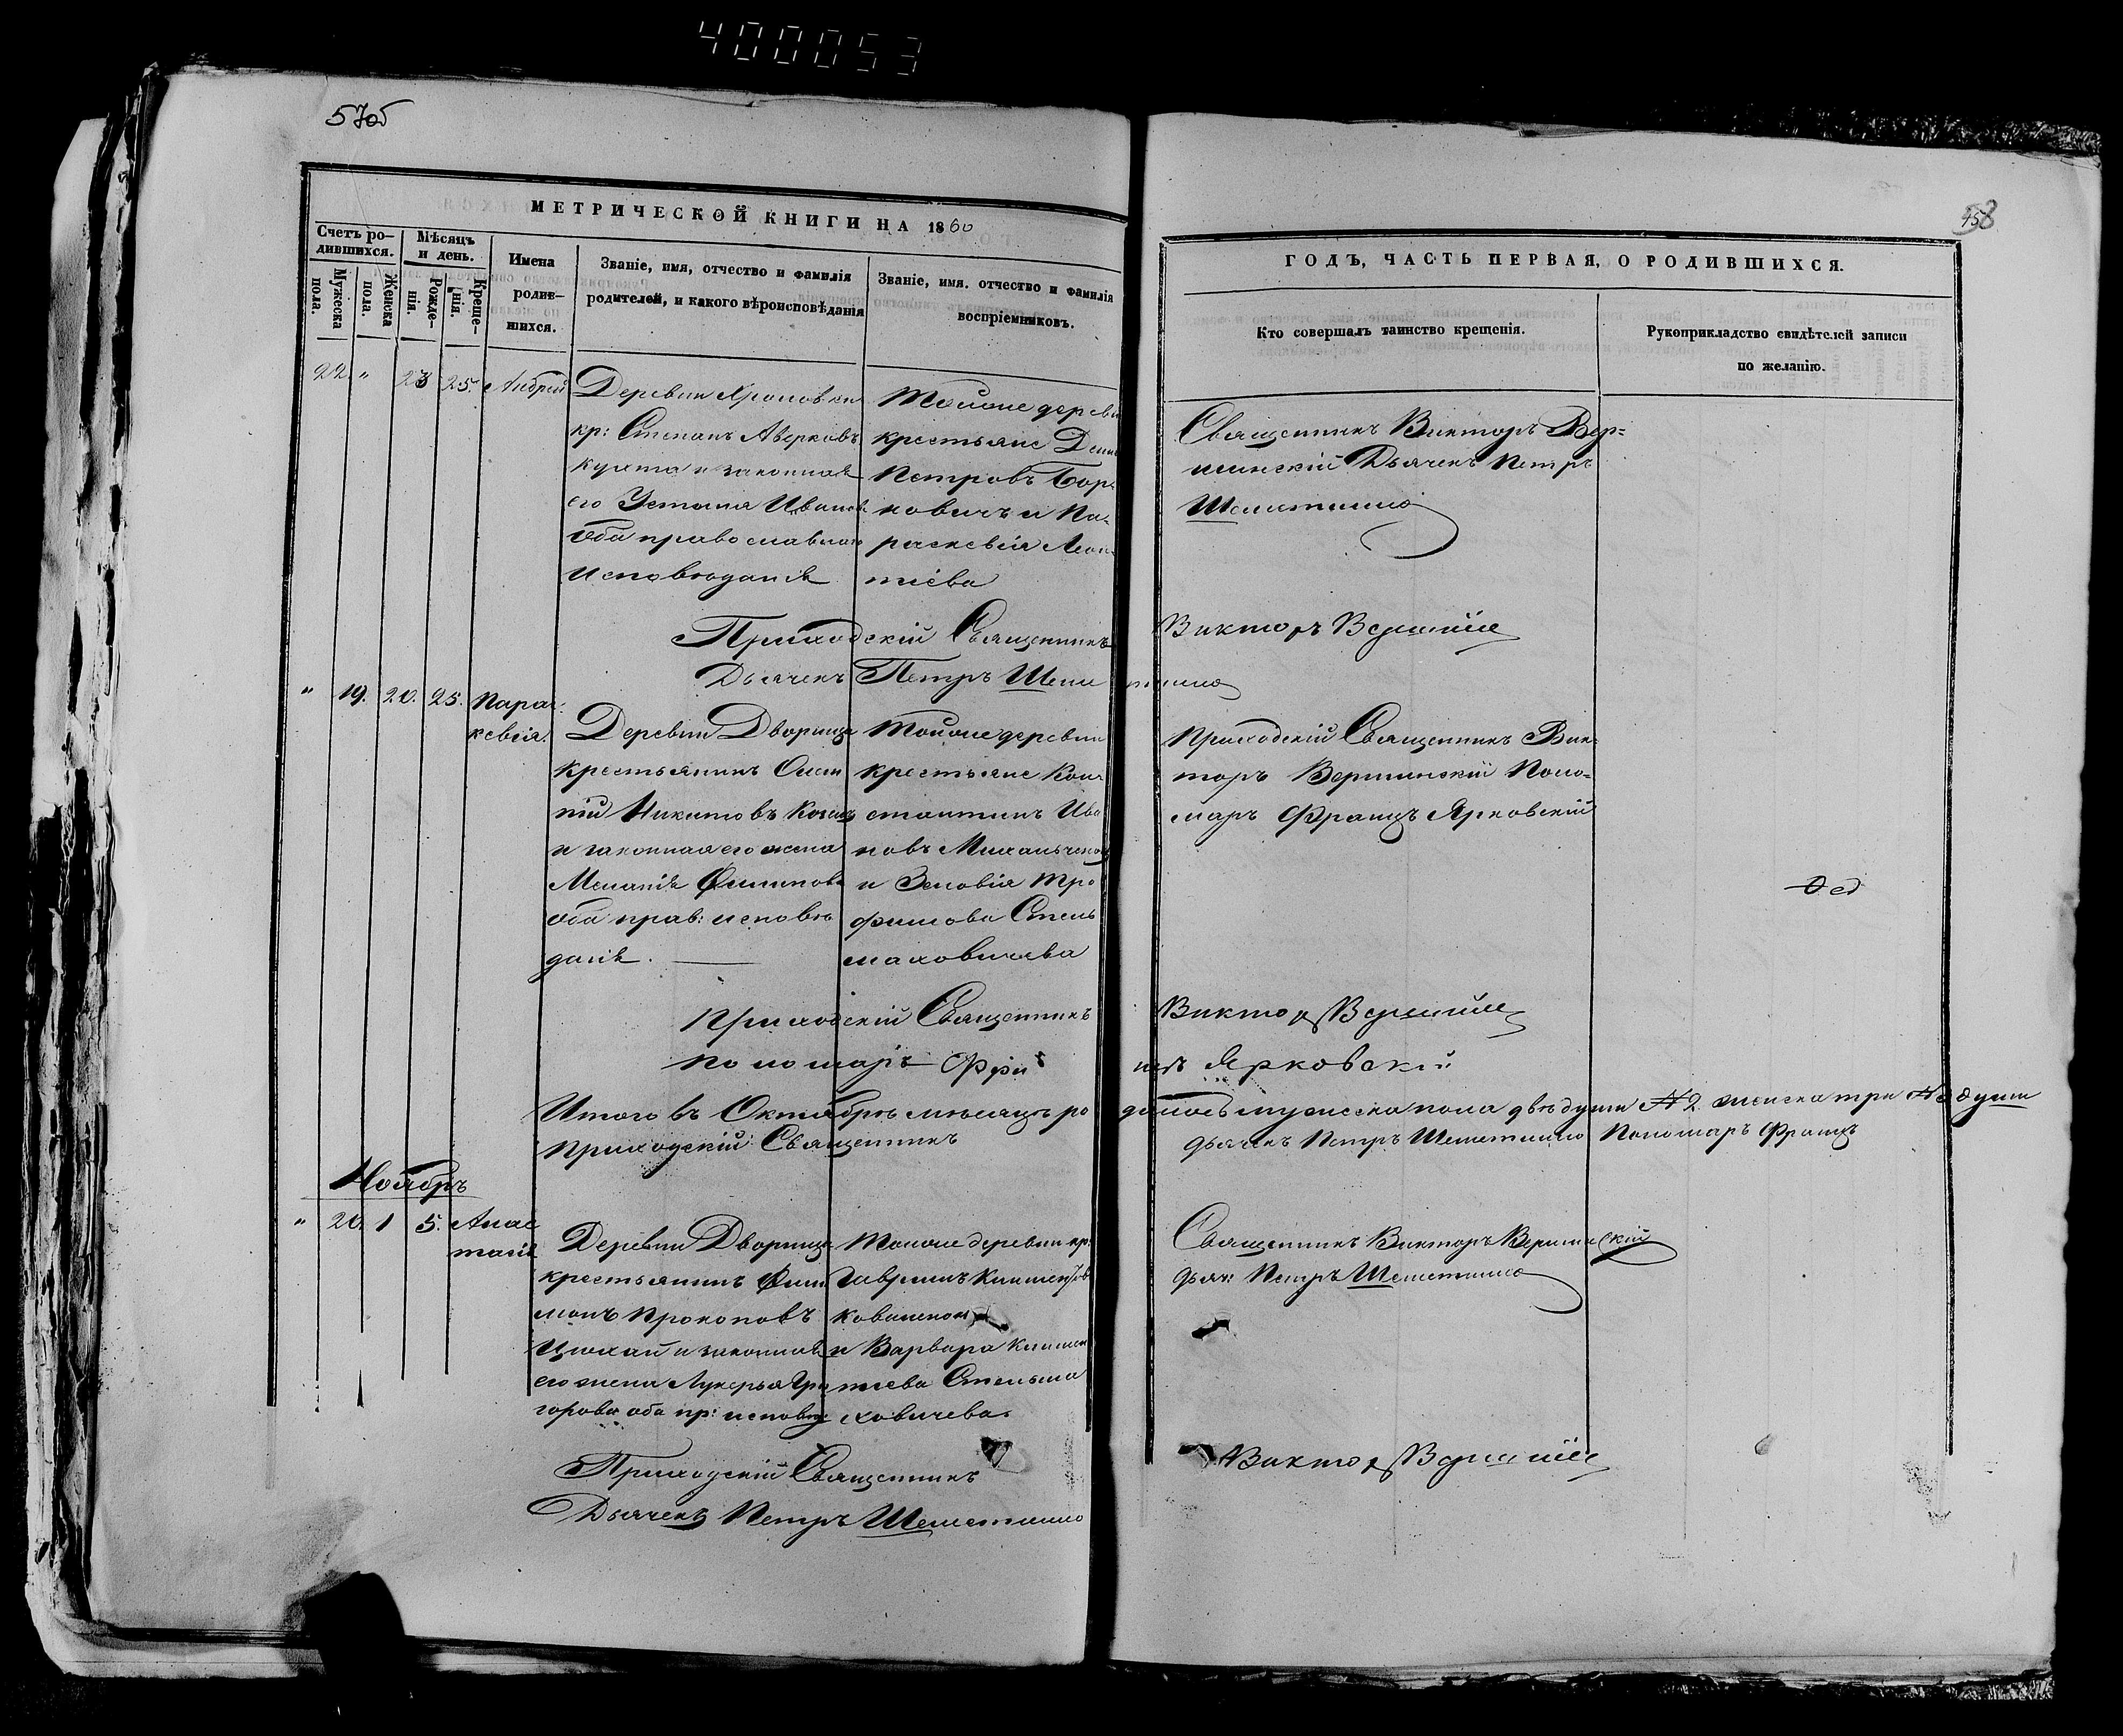 400053
57об
58
МЕТРИЧЕСКОЙ КНИГИ НА 1860
Счетъ ро-
дившихся.
Мужеска
пола.
Женска
пола.
Мѣсяцъ
и день.
Рожде-
нія.
Креще-
нія.
Имена
родив-
шихся.
Званіе, имя, отчество и фамилія
родителей, и какого вѣроисповѣданія
Званіе, имя. отчество и фамилія
воспріемниковъ.
ГОДЪ, ЧАСТЬ ПЕРВАЯ, О РОДИВШИХСЯ.
Кто совершалъ таинство крещенія.
Рукоприкладство свидѣтелей записи
по желанію.
22. " 23 25. Андрей
Деревни
кр: Степанъ Аверковъ
Кухта и законная
его Устинія Иванов
оба православнаго
исповѣданія
Тойже деревн
крестьяне
Петровъ Бор-
ковичъ и Па-
раскевія Леон-
тіева
Священникъ Викторъ Вер=
шинскій Дьячекъ Петръ
Шеметилло
Приходскій Священникъ Викторъ
Дьячекъ Петръ Шеметилло
" 19. 20. 25. Парас-
кевія.
Деревни Дворища
крестьянинъ
Никитовъ
и законная его жена
Меланія Филипова
оба прав: исповѣ
данія.
Тойже деревни
крестьяне Кон-
стантинъ Ива
новъ
и Зеновія Тро
фимова Стель
маховичева
Приходскій Священникъ Вик-
торъ Вершинскій Поно-
марь Францъ Ярковскій
Приходскій Священникъ Викторъ
Пономарь Францъ Ярковскій
Итого въ Октябрѣ мѣсяцѣ родилось мужеска пола двѣ души № 2 женска три № 3 души
Приходскій Священникъ Дьячекъ Петръ Шеметилло Пономарь Францъ
Ноябрь
" 20. 1 5. Анас
тасія
Деревни Дворища
крестьянинъ Фили
монъ Прокоповъ
и законная
его жена Лукерья Гри
горова оба пр: исповѣд
Тойже деревни кр:
Гаврилъ
и Варвара Климен
тіева Стельма
ховичева.
Священникъ Викторъ Вершинскій
Дьяч: Петръ Шеметилло
Приходскій Священникъ Викторъ
Дьячекъ Петръ Шеметилло